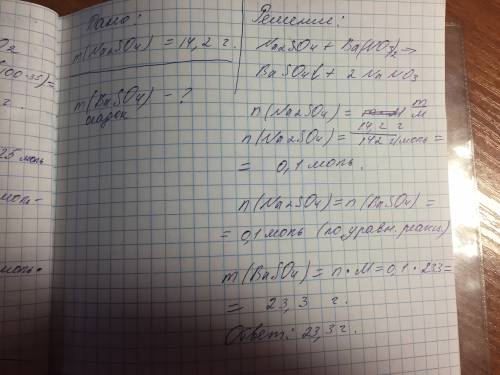 Дано:
m(Na2SO4) = 14,2 г.
m(BaSO4) - ?
осадок
Решение:
Na2SO4 + Ba(NO3)2 →
BaSO4↓ + 2 NaNO3
n(Na2SO4) = m/M
n(Na2SO4) = 14,2 г / 142 г/моль =
= 0,1 моль.
n(Na2SO4) = n(BaSO4) =
= 0,1 моль (по уравн. реакц.)
m(BaSO4) = n · M = 0,1 · 233 =
= 23,3 г.
Ответ: 23,3 г.
(100-35) =
г.
25 моль
моль